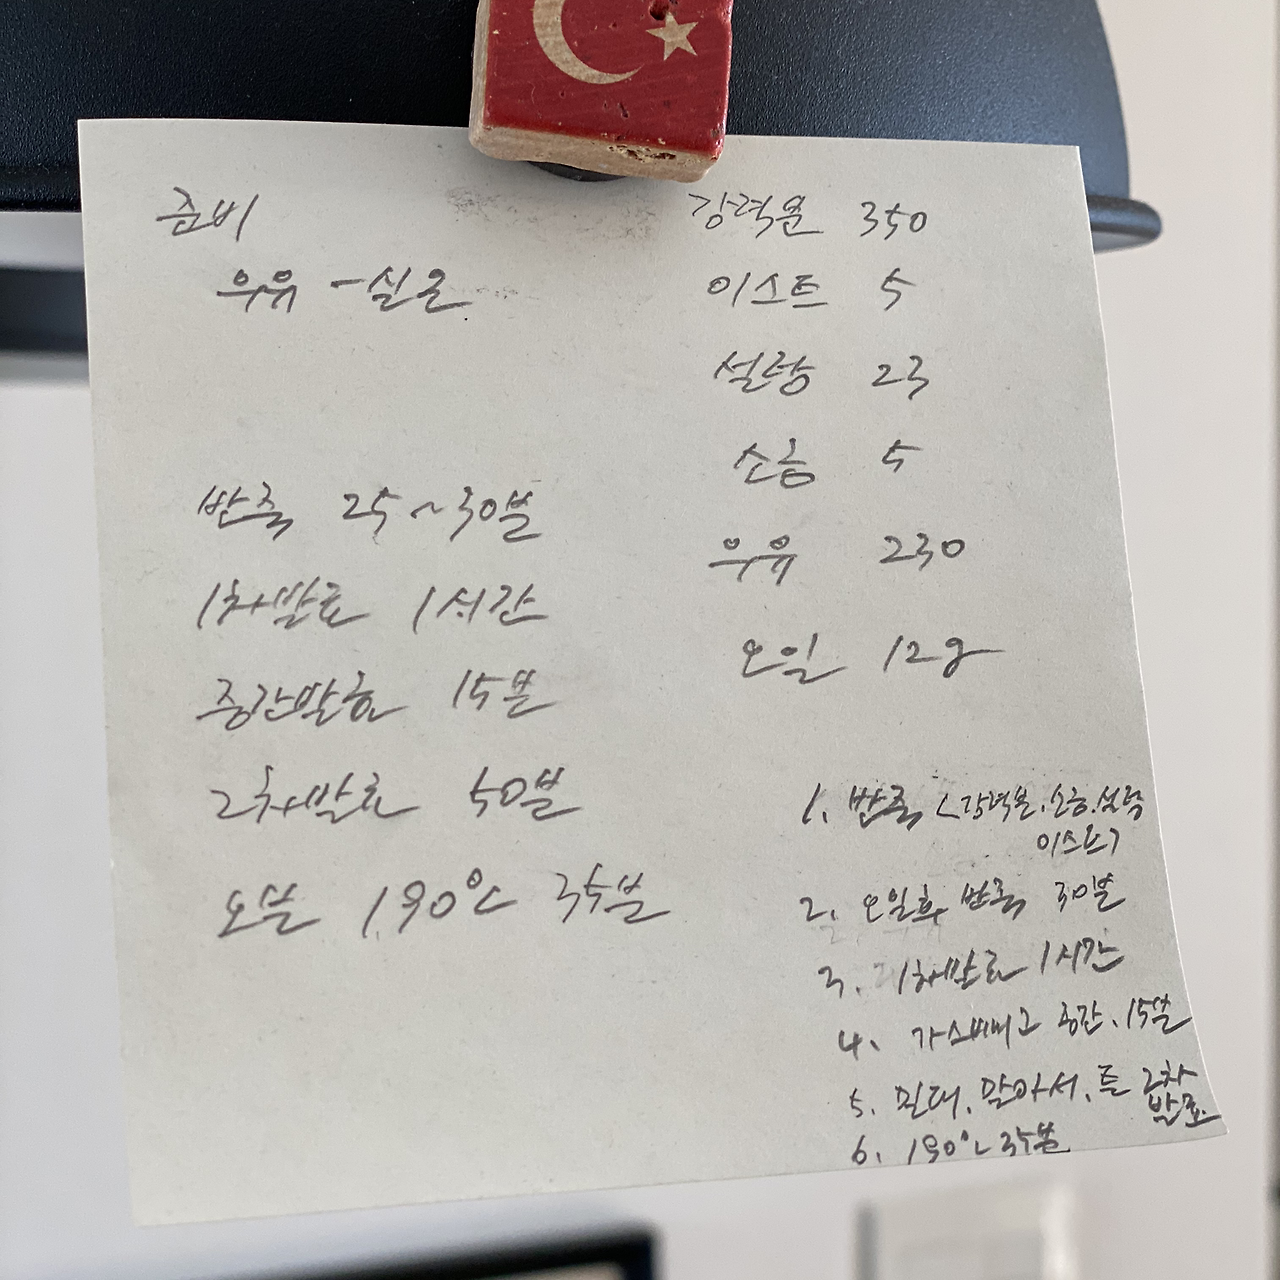 준비
우유 - 실온
반죽 25~30분
1차발효 1시간
중간발효 15분
2차발효 50분
오븐 190℃ 35분
강력분 350
이스트 5
설탕 23
소금 5
우유 230
오일 12g
1. 반죽 <강력분.소금.설탕
이스트>
2. 오일후 반죽 30분
3. 1차발효 1시간
4. 가스빼고 중간. 15분
5. 밀대. 말아서. 틀 2차
발효
6. 190℃ 35분